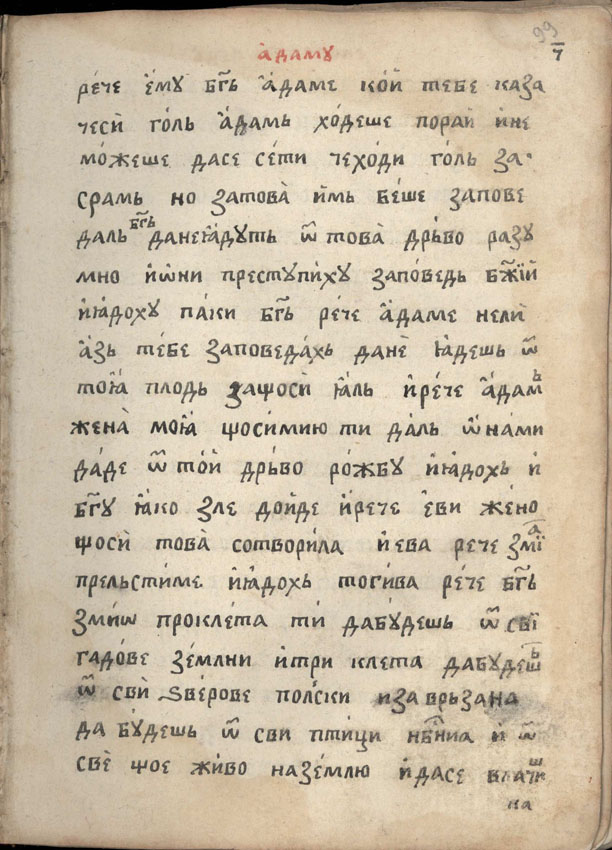 99
7
а҆дамꙋ
ре́че е҆мꙋ бг҃ь а҆даме кои҆ тебе каза
чеси҆ го́ль а҆дамь хо́деше порай и҆не
мо́жеше дасе се́ти чехо́ди го́ль за
срамь но затова̀ и҆мь бе́ше запове
даль бг҃ь данеꙗ҆дꙋть ѿ това̀ дрь́во разꙋ
мно и҆ѡ҆ни престꙋпи́хꙋ запо́ведь бж҃їй
и҆ꙗ҆дохꙋ па́ки бг҃ь ре́че а҆даме нели҆
а҆зь те́бе заповеда́хь данѐ ꙗ҆дешь ѿ
тоꙗ҆ плодь защоси҆ ꙗ҆ль и҆ре́че а҆дамь
жена̀ моꙗ҆ щосимию ти да́ль ѡ҆нами
да́де ѿ то́й дрь́во ро́жбꙋ и҆ꙗ҆дохь и҆
бг҃ꙋ ꙗ҆ко зле до́йде и҆рече е҆ви же́но
щоси҆ това̀ сотвори́ла и҆ева рече змїа
прельсти́ме и҆ꙗ҆дохь тоги́ва ре́че бг҃ь
зми́ѡ прокле́та ти́ дабꙋ́дешь ѿ сви҆
гадо́ве зе́млни и҆три клета дабꙋ́дешь
ѿ сви҆ ѕве́рове по́лски иза врьзана
да бꙋ́дешь ѿ сви пти́ци нбⷭ҇ниа и҆ ѿ
свѐ щое жи́во назе́млю и҆дасе влачиш
на